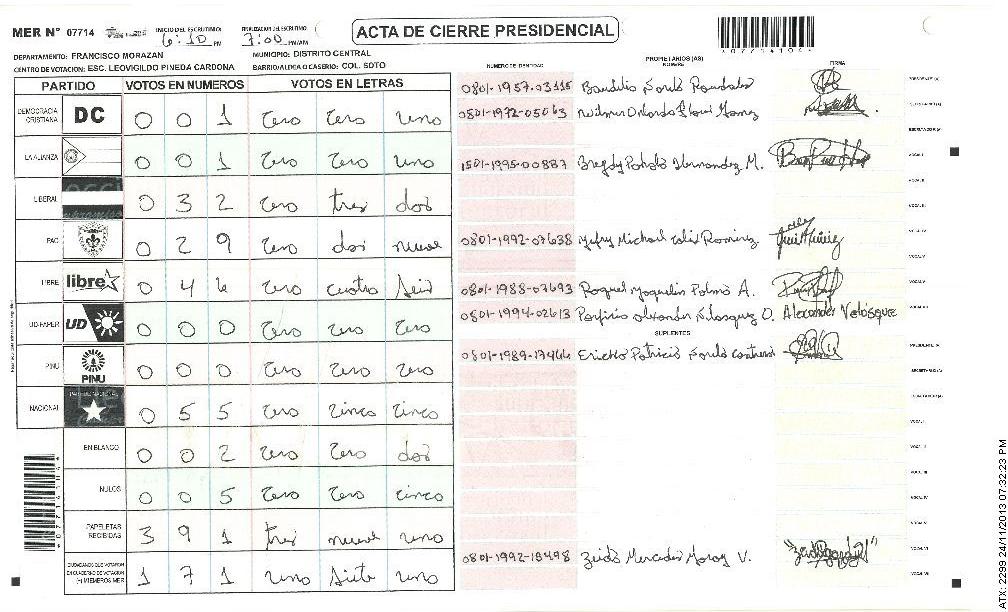 MER N° 07714 INICIO DEL ESCRUTINIO: 6:10 PM FINALIZACION DEL ESCRUTINIO: 7:00 PM/AM
ACTA DE CIERRE PRESIDENCIAL
DEPARTAMENTO: FRANCISCO MORAZAN MUNICIPIO: DISTRITO CENTRAL
CENTRO DE VOTACION: ESC. LEOVIGILDO PINEDA CARDONA BARRIO/ALDEA O CASERIO: COL. SOTO
PARTIDO VOTOS EN NUMEROS VOTOS EN LETRAS
DEMOCRACIA CRISTIANA DC 0 0 1 Zero Zero uno
LA ALIANZA 0 0 1 Zero Zero uno
LIBERAL 0 3 2 Zero tres dos
PAC 0 2 9 Zero dos nueve
LIBRE libre 0 4 6 Zero cuatro Seis
UD-FAPER UD 0 0 0 Zero Zero Zero
PINU PINU 0 0 0 Zero Zero Zero
NACIONAL 0 5 5 Zero Zinco Zinco
EN BLANCO 0 0 2 Zero Zero dos
NULOS 0 0 5 Zero Zero Zinco
PAPELETAS RECIBIDAS 3 9 1 tres nueve uno
CIUDADANOS QUE VOTARON EN CUADERNO DE VOTACION (+) MIEMBROS MER 1 7 1 uno Siete uno
NUMERO DE IDENTIDAD PROPIETARIOS (AS) NOMBRE FIRMA
0801-1957-03115 PRESIDENTE (A)
0801-1972-05063 Wilmer Orlando Gomez SECRETARIO (A)
ESCRUTADOR (A)
1501-1995-00887 Hernandez M. VOCAL I
VOCAL II
VOCAL III
0801-1992-07638 Michael VOCAL IV
VOCAL V
0801-1988-07693 Raquel Yaquelin Palma A.
0801-1994-02613 Porfirio Alexander Velasquez O. Alexander Velásquez
SUPLENTES
0801-1989-17466 PRESIDENTE (A)
SECRETARIO (A)
ESCRUTADOR (A)
VOCAL I
VOCAL II
VOCAL III
VOCAL IV
VOCAL V
0801-1992-18498 Zeida Mercedes V. VOCAL VI
VOCAL VII
ATX: 2299 24/11/2013 07:32:23 PM